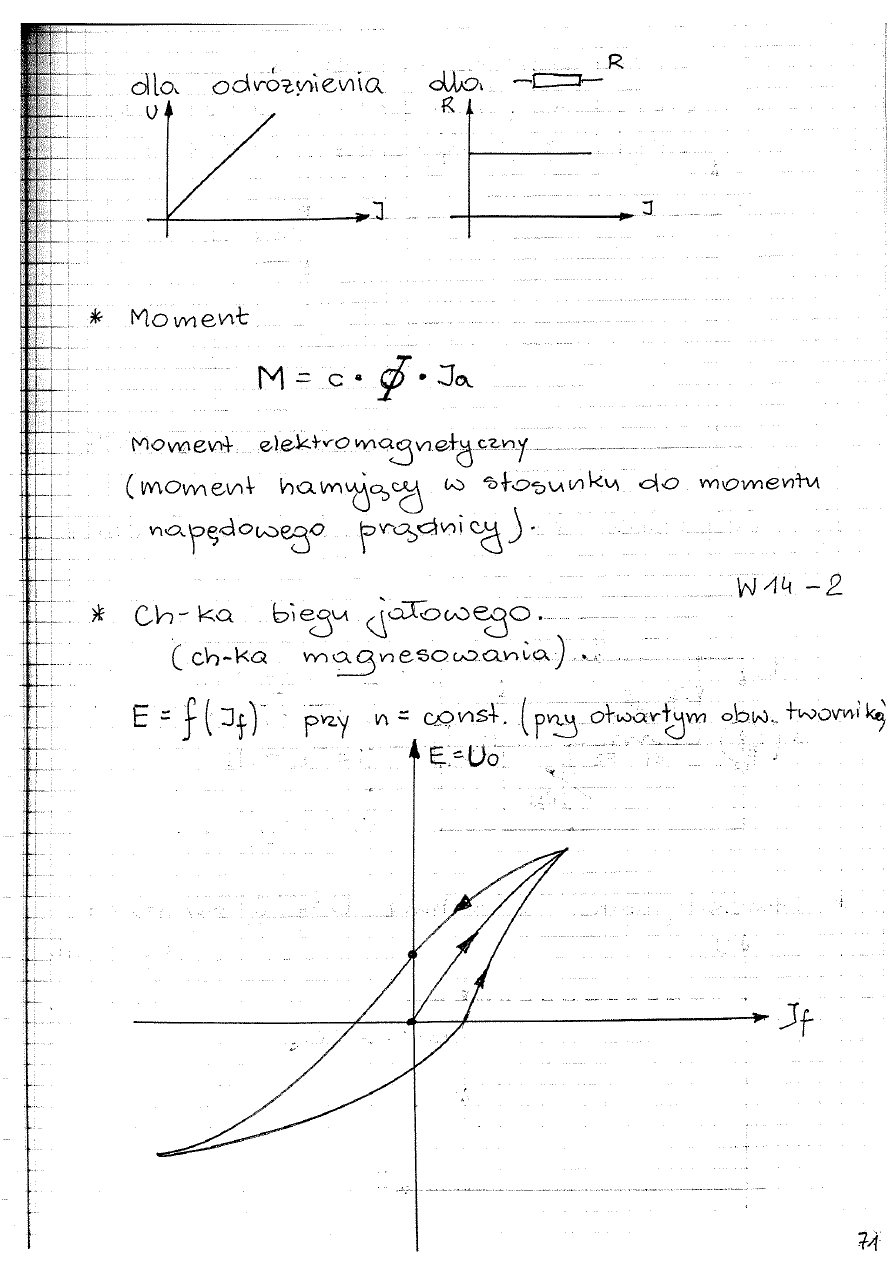 dla odróżnienia dla R
U R
I I
* Moment
M = c · Φ · Ia
Moment elektromagnetyczny
(moment hamujący w stosunku do momentu
napędowego prądnicy).
W14-2
* Ch-ka biegu jałowego.
(ch-ka magnesowania).
E = f(If) przy n = const. (przy otwartym obw. twornika)
E = Uo
If
71